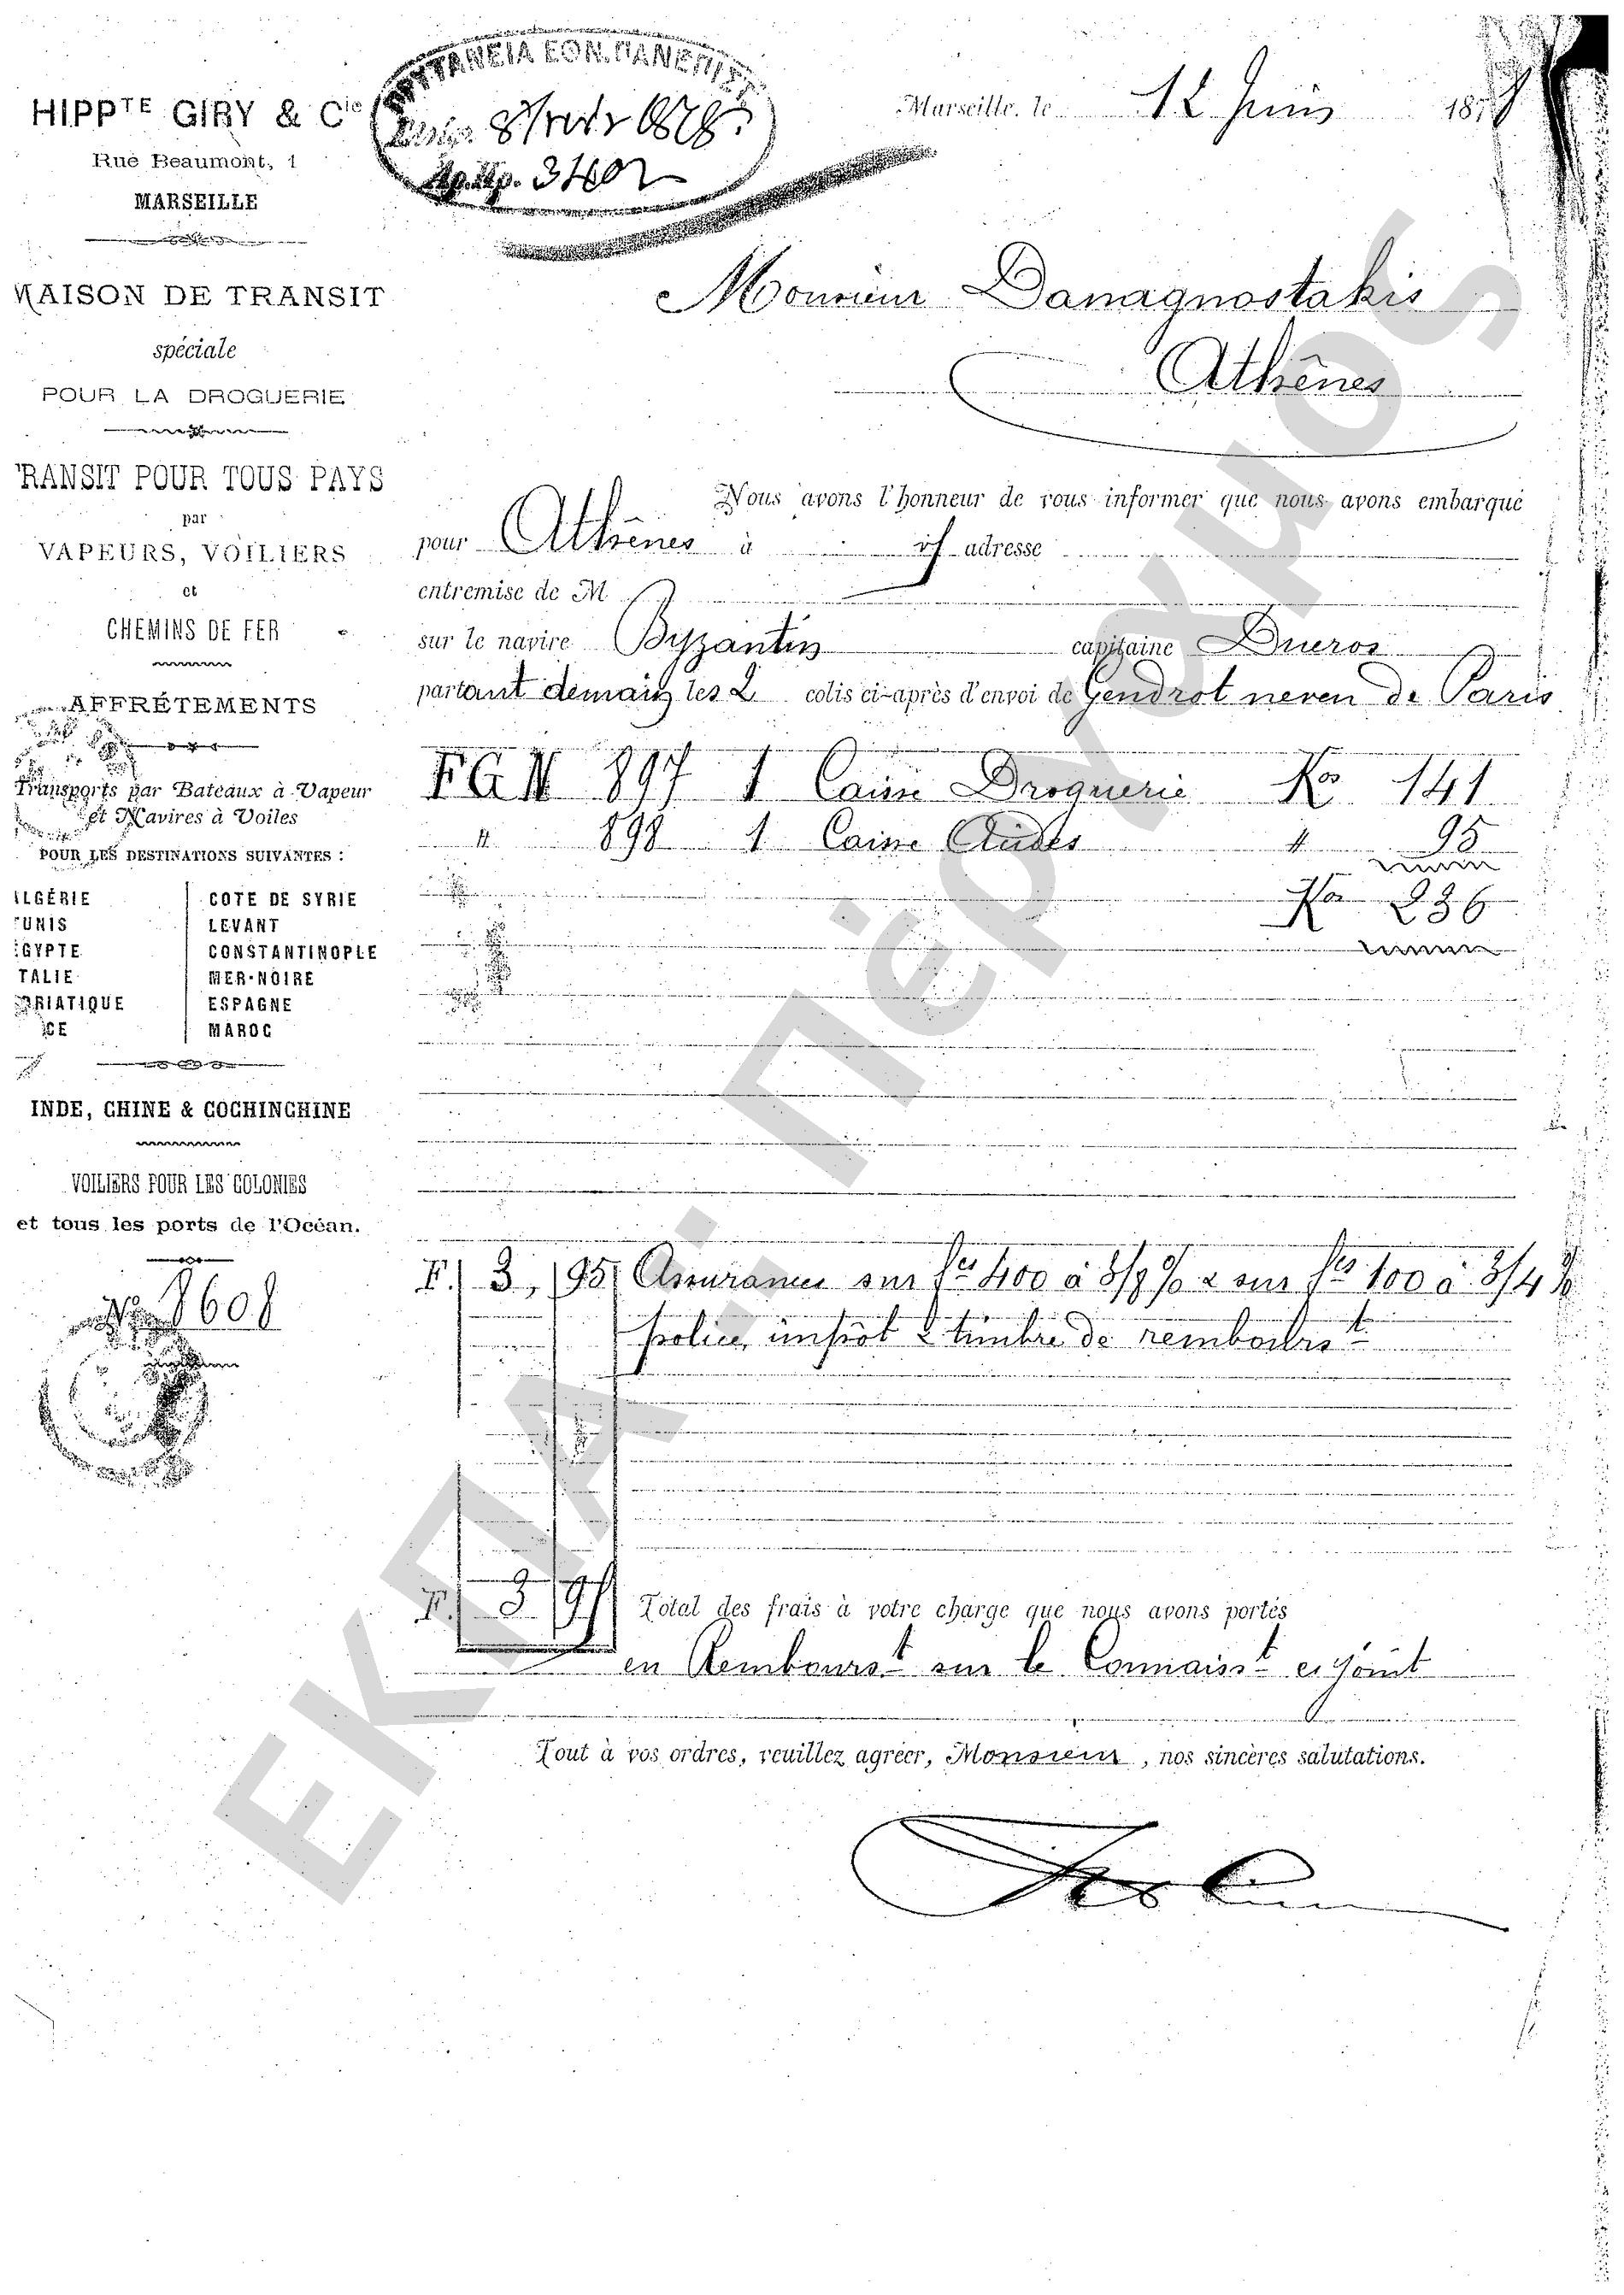 HIPP^TE GIRY & C^ie
Rue Beaumont, 1
MARSEILLE
MAISON DE TRANSIT
spéciale
POUR LA DROGUERIE
RANSIT POUR TOUS PAYS
par
VAPEURS, VOILIERS
et
CHEMINS DE FER
AFFRÉTEMENTS
Transports par Bateaux à Vapeur
et Navires à Voiles
POUR LES DESTINATIONS SUIVANTES :
LGÉRIE COTE DE SYRIE
UNIS LEVANT
GYPTE CONSTANTINOPLE
TALIE MER-NOIRE
RIATIQUE ESPAGNE
CE MAROC
INDE, CHINE & COCHINCHINE
VOILIERS POUR LES COLONIES
et tous les ports de l'Océan.
N° 8608
ΠΡΥΤΑΝΕΙΑ ΕΘΝ. ΠΑΝΕΠΙΣΤ
1878
3402
Marseille, le 12 Juin 1878
Monsieur Danagnostakis
Athênes
Nous avons l'honneur de vous informer que nous avons embarqué
pour Athênes à v/ adresse
entremise de M
sur le navire Byzantin capitaine Dueros
partant demain les 2 colis ci-après d'envoi de Gendrot neveu de Paris
FGN 897 1 Caisse Droguerie Kos 141
" 898 1 Caisse Acides " 95
Kos 236
F. 3, 95 Assurance sur fcs 400 à 3/8 % & sur fcs 100 à 3/4 %
police, impôt & timbre de rembours^t
F. 3 95 Total des frais à votre charge que nous avons portés
en Rembours^t sur le Connaiss^t ci joint
Tout à vos ordres, veuillez agréer, Monsieur, nos sincères salutations.
ΕΚΠΑ.: Πέργαμος